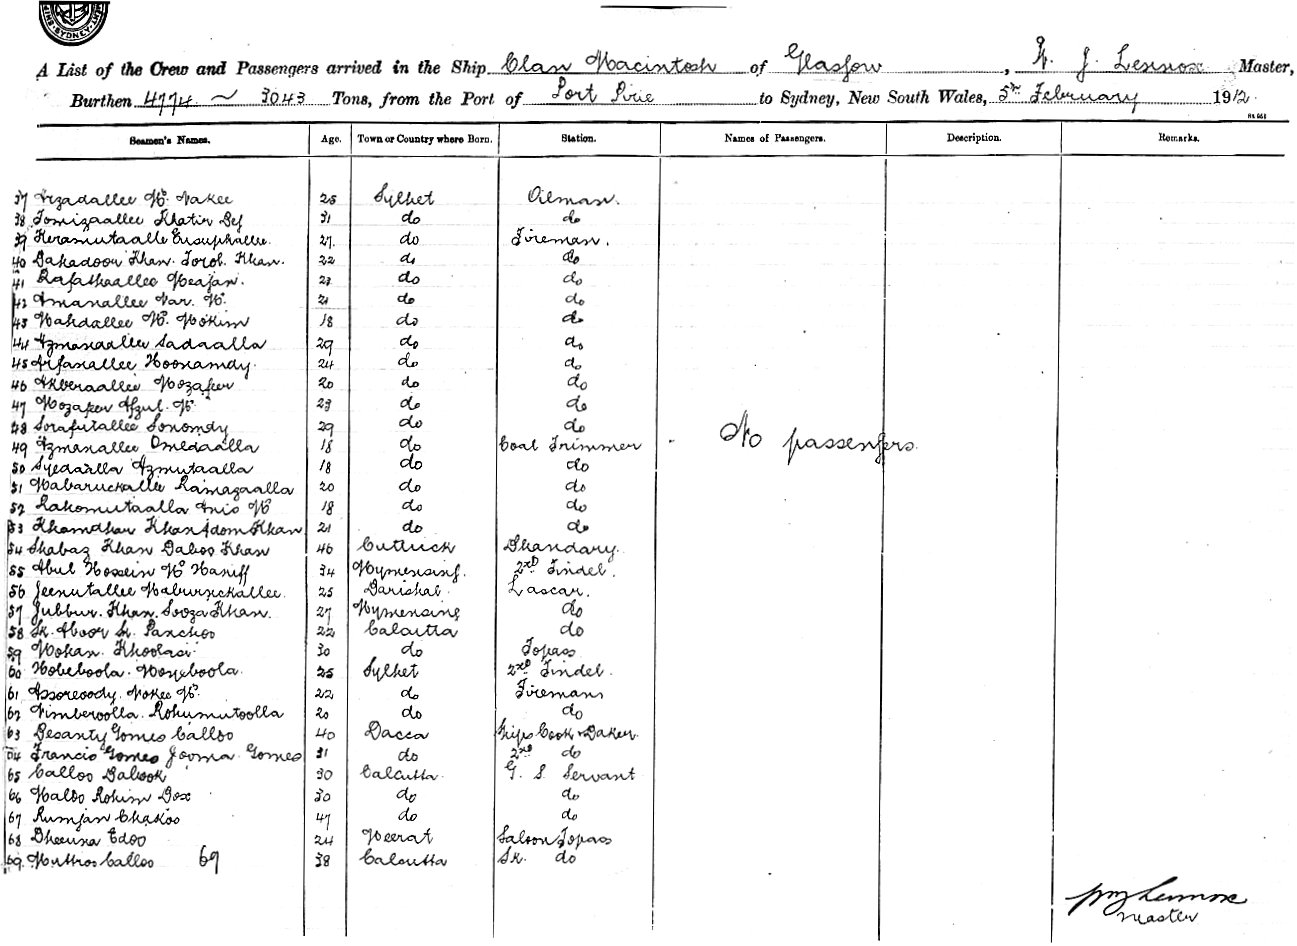 SYDNEY
A List of the Crew and Passengers arrived in the Ship Clan Macintosh of Glasgow, J. Lennox Master,
Burthen 4774 ~ 3043 Tons, from the Port of Port Pirie to Sydney, New South Wales, 5th February 1912
Seamen's Names. Age. Town or Country where Born. Station. Names of Passengers. Description. Remarks.
37 Azadallee Md. Nakee 25 Sylhet Oilman.
38 Tomizaallee Khatir 31 do do
39 Keramutaalle Eusuphallee 27 do Fireman.
40 Dahadoor Khan. Torob. Khan. 22 do do
41 Rafathaallee Meajan. 23 do do
42 Amanallee Nar. Md. 21 do do
43 Wahdallee Md. Mokim 18 do do
44 Azmanaallee Sadaalla 29 do do
45 Arfanallee Noonamdy. 24 do do
46 Akberaallee Mozafer 20 do do
47 Mozafer Afzul. Md 23 do do
48 Sorafutallee Sonomdy 29 do do
49 Azmanallee Omedaalla 18 do Coal Trimmer No passengers.
50 Syedaalla Azmutaalla 18 do do
51 Mabaruckallee Ramazaalla 20 do do
52 Rakomutaalla Anis Md 18 do do
53 Khamdhan Khan Adom Khan 21 do do
54 Shabaz Khan Daboo Khan 46 Cuttuck Bhandary.
55 Abul Hossein Md Haniff 34 Mymensing. 2nd Tindel.
56 Jeenutallee Maburuckallee. 25 Barishal. Lascar.
57 Jubbur. Khan. Sooza Khan. 27 Mymensing do
58 Sk. Aboor Sk. Panchoo 22 Calcutta do
59 Mokan. Khoolasi 30 do Topass
60 Hobeboola. Moyeboola. 25 Sylhet 2nd Tindel.
61 Assorewdy. Nokee Md. 22 do Firemans
62 Nimberoolla. Rohumutoolla 20 do do
63 Besanty Gomes Calloo 40 Dacca Ships Cook & Baker.
64 Francis Gomes Jooma. Gomes 31 do 2nd do
65 Calloo Babook 30 Calcutta. G. S. Servant
66 Maloo Rohim Box 30 do do
67 Rumjan Chakoo 47 do do
68 Dheema Edoo 24 Meerat Saloon Topass
69. Muthroo Calloo 69 38 Calcutta Sk. do
Lennox
Master